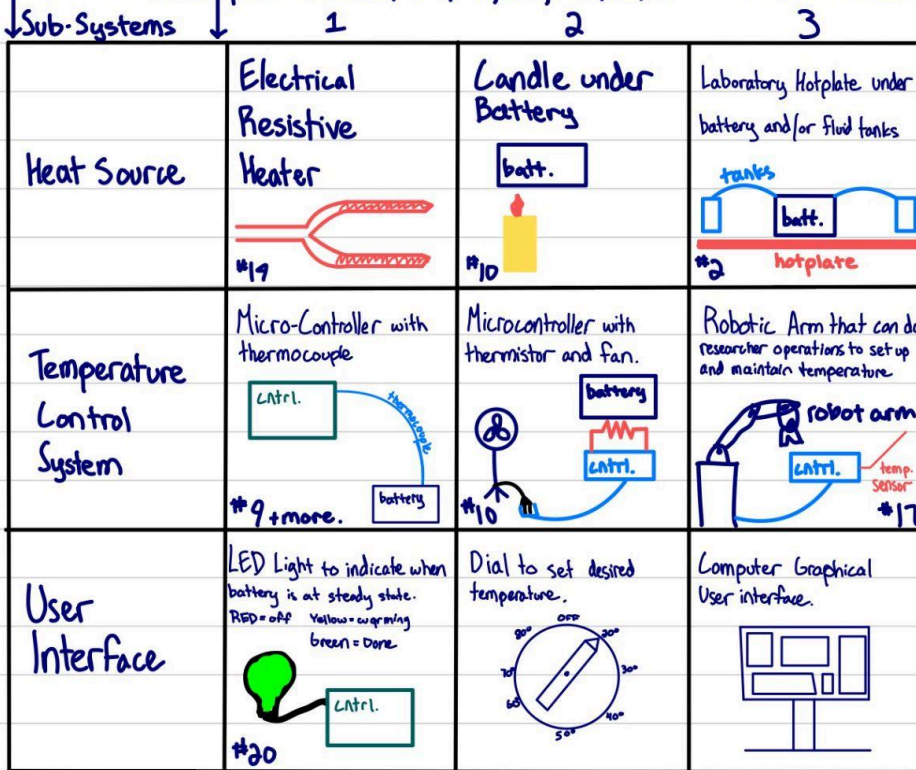 ↓Sub-Systems ↓ 1 2 3
Heat Source
Electrical
Resistive
Heater
#19
Candle under
Battery
batt.
#10
Laboratory Hotplate under
battery and/or fluid tanks
tanks
batt.
hotplate
#2
Temperature
Control
System
Micro-Controller with
thermocouple
cntrl.
thermocouple
battery
#9 +more.
Microcontroller with
thermistor and fan.
battery
cntrl.
#10
Robotic Arm that can do
researcher operations to set up
and maintain temperature
robot arm
cntrl.
temp.
sensor
#17
User
Interface
LED Light to indicate when
battery is at steady state.
RED=off Yellow=warming
Green=Done
cntrl.
#20
Dial to set desired
temperature.
OFF
20°
30°
40°
50°
60°
70°
80°
Computer Graphical
User interface.